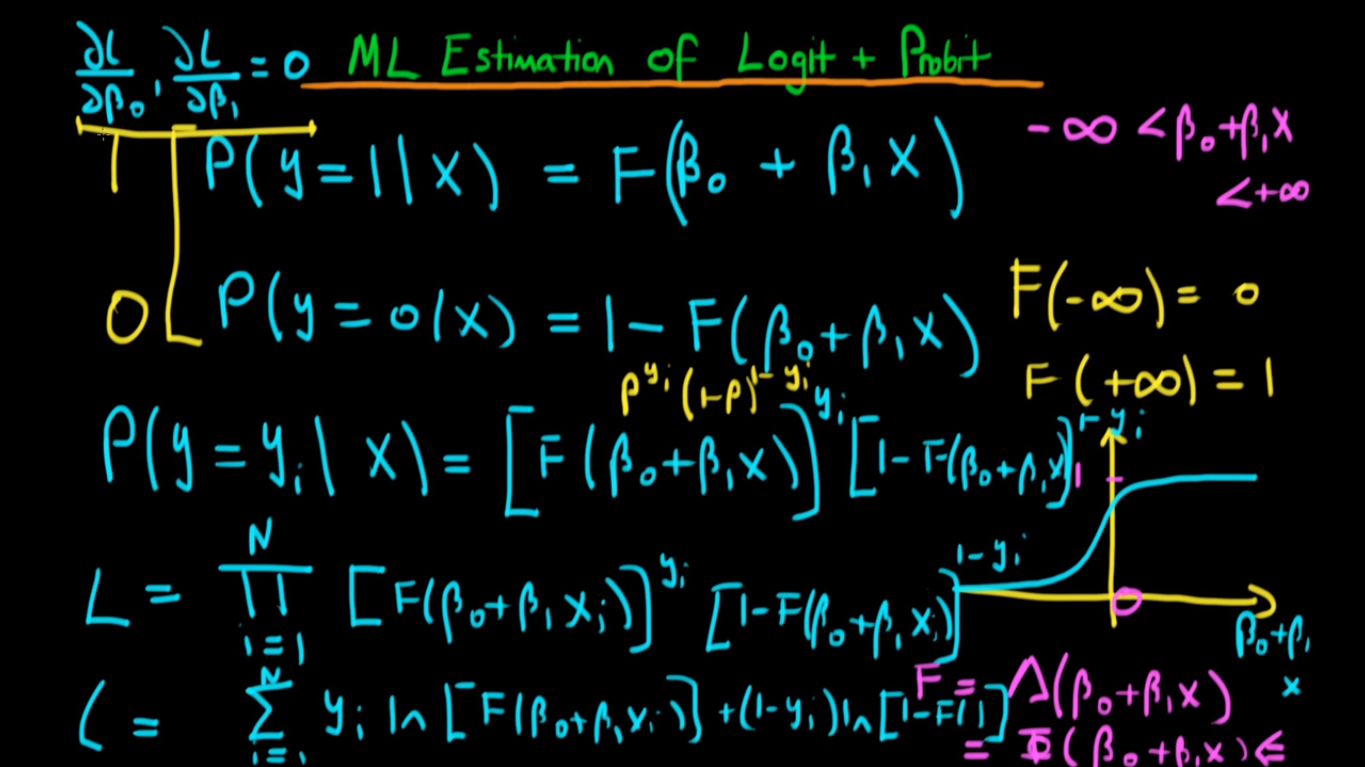 ∂l/∂β₀, ∂L/∂β₁ = 0 ML Estimation of Logit + Probit
-∞ < β₀+β₁X
< +∞
1 P(y=1|X) = F(β₀ + β₁X)
F(-∞) = 0
0 P(y=0|X) = 1 - F(β₀+β₁X)
F(+∞) = 1
P^yᵢ (1-P)^1-yᵢ
P(y=yᵢ|X) = [F(β₀+β₁X)]^yᵢ [1-F(β₀+β₁X)]^1-yᵢ
1
L = ∏_{i=1}^{N} [F(β₀+β₁Xᵢ)]^yᵢ [1-F(β₀+β₁Xᵢ)]^1-yᵢ
0
β₀+β₁
x
F = Λ(β₀+β₁X)
l = ∑_{i=1}^{N} yᵢ ln[F(β₀+β₁Xᵢ)] + (1-yᵢ)ln[1-F( )]
= Φ(β₀+β₁X) ⇐